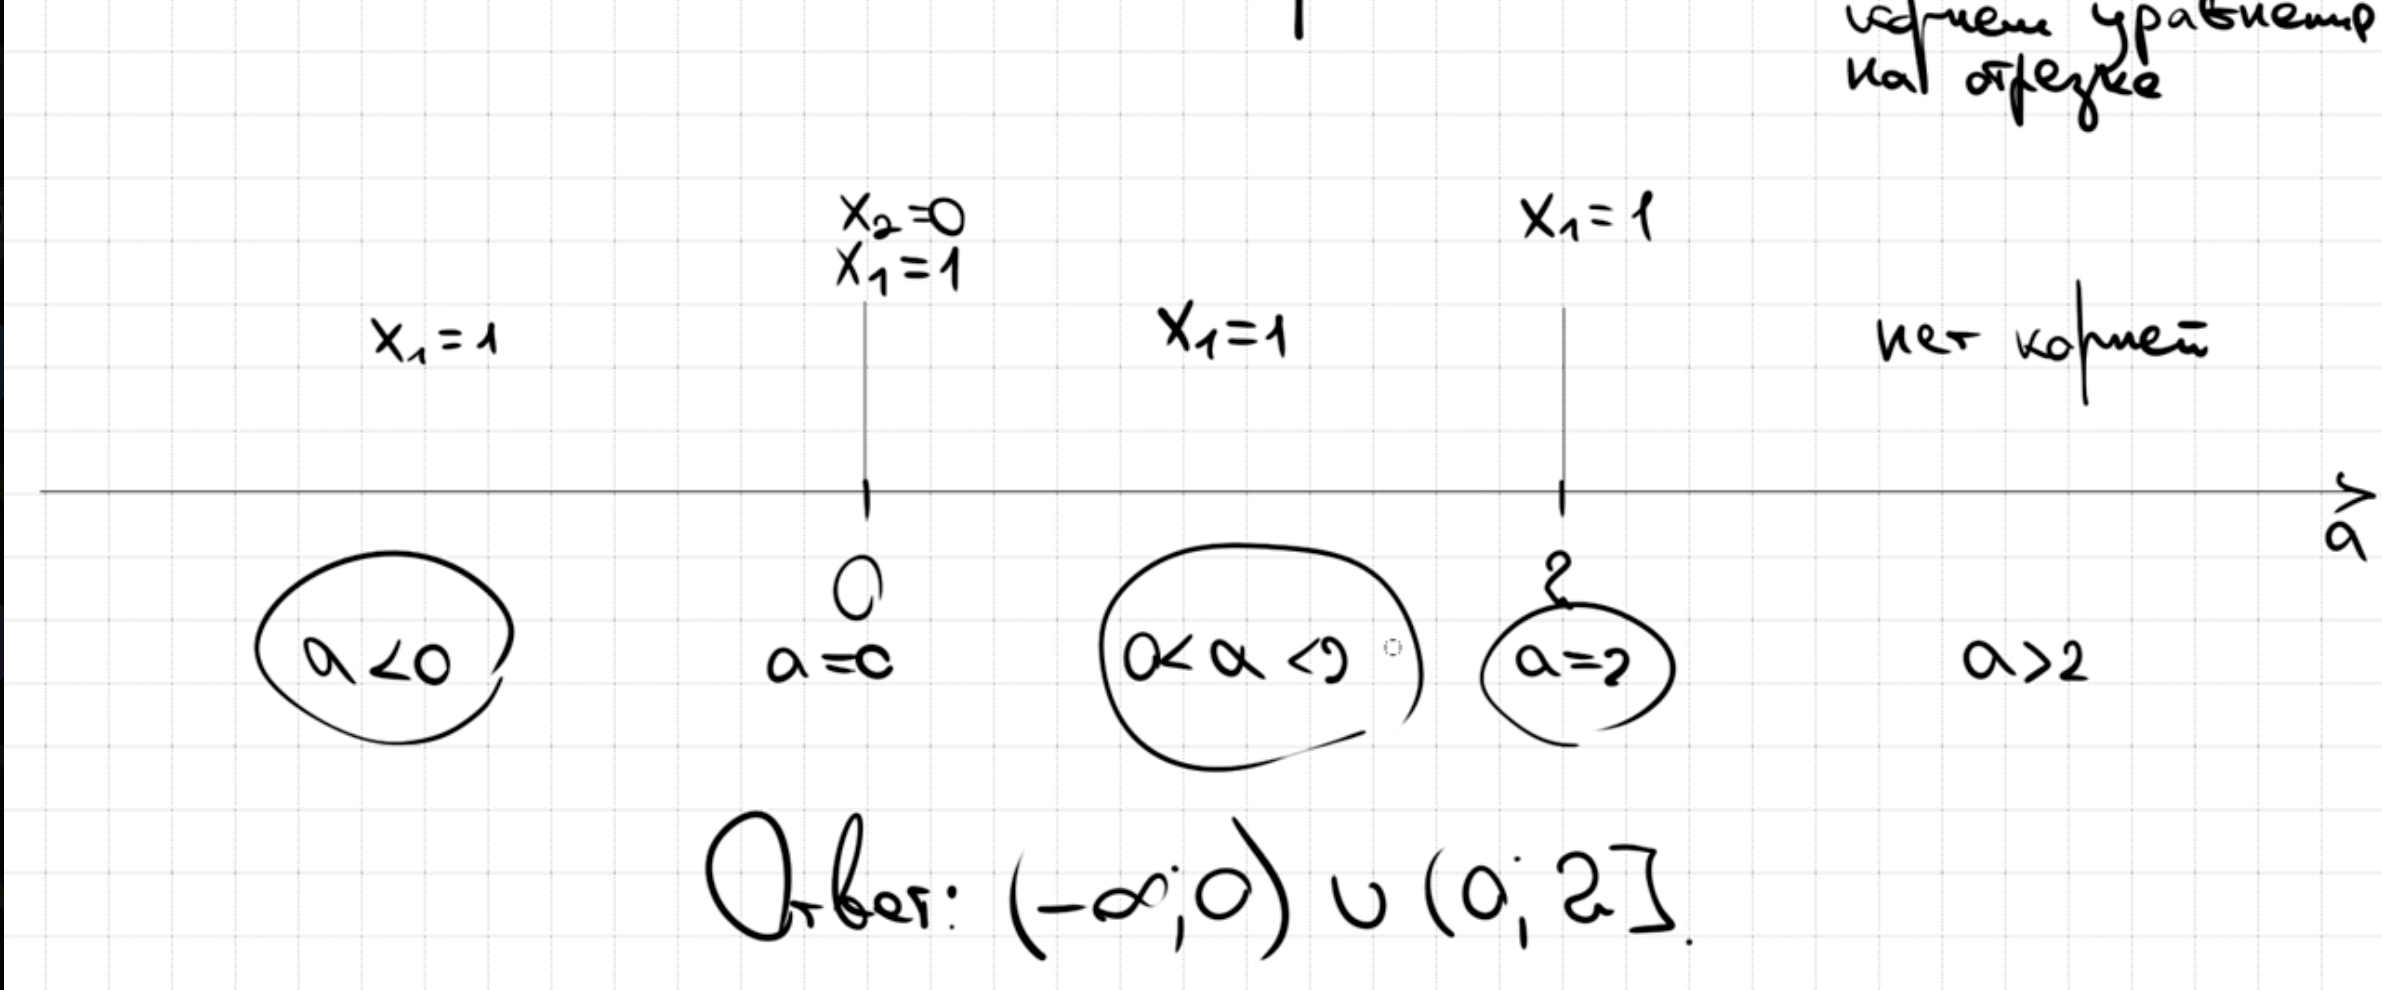 корнем уравнения
на отрезке
x₂=0
x₁=1
x₁=1
x₁=1
x₁=1
нет корней
a
0
2
a<0
a=0
0<a<2
a=2
a>2
Ответ: (-∞;0) ∪ (0;2].